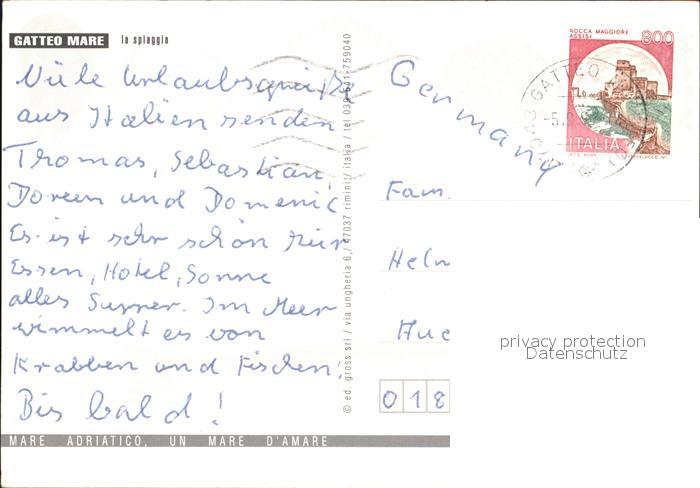 GATTEO MARE la spiaggia
Viele Urlaubsgrüße
aus Italien senden
Thomas, Sebastian,
Doreen und Domenic
Es ist sehr schön hier
Essen, Hotel, Sonne
alles Supper. Im Meer
wimmelt es von
Krabben und Fischen.
Bis bald!
MARE ADRIATICO, UN MARE D'AMARE
© ed. gross srl / via ungheria 6 / 47037 rimini / italia / tel 039-541-759040
ROCCA MAGGIORE
ASSISI
800
ITALIA
GATTEO
Germany
Fam.
Heln
Aue
018
privacy protection
Datenschutz